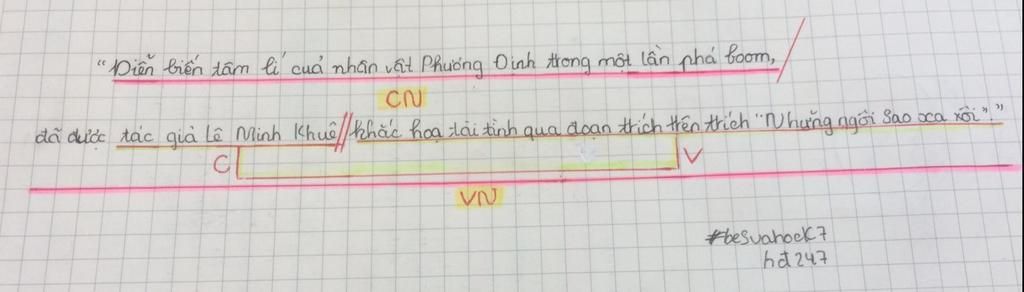 "Diễn biến tâm lí của nhân vật Phương Định trong một lần phá boom,
CN
đã được tác giả Lê Minh Khuê khắc hoạ tài tình qua đoạn trích trên trích "Những ngôi sao xa xôi"."
C V
VN
#besuahocK7
hđ247